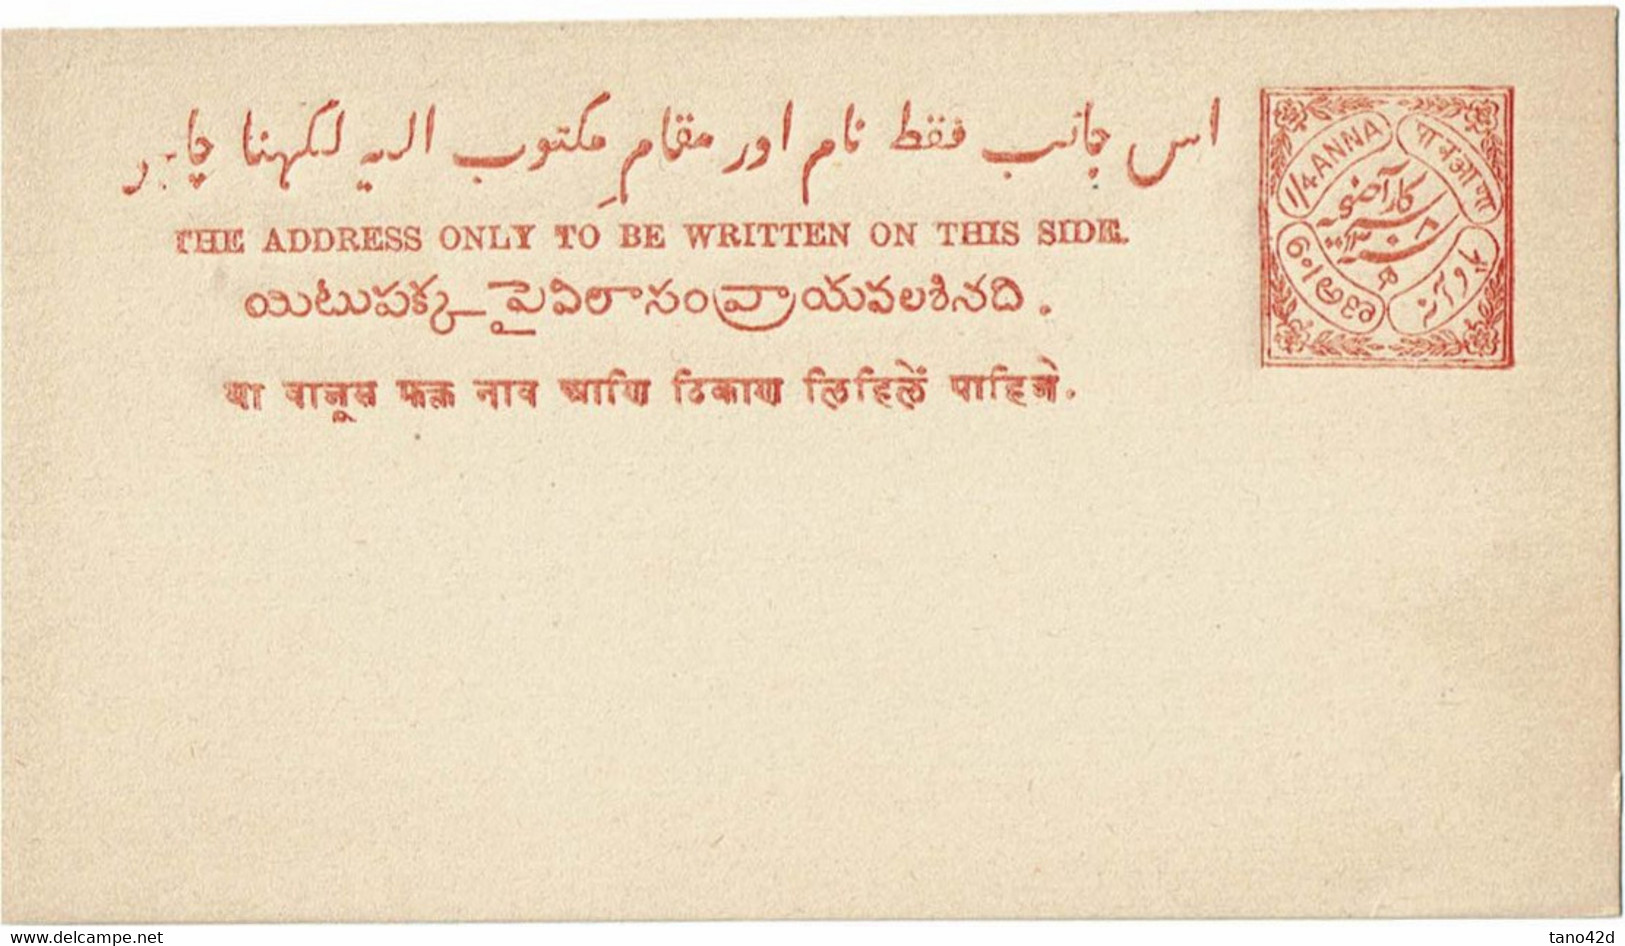 اس جانب فقط نام اور مقام مکتوب الیہ لکهنا چاہر
THE ADDRESS ONLY TO BE WRITTEN ON THIS SIDE.
యిటుపక్క పైవిలాసంవ్రాయవలశినది.
या बाजूस फक्त नाव आणि ठिकाण लिहिलें पाहिजे.
1/4 ANNA
पा व आ णा
پاو آنہ
delcampe.net
tano42d